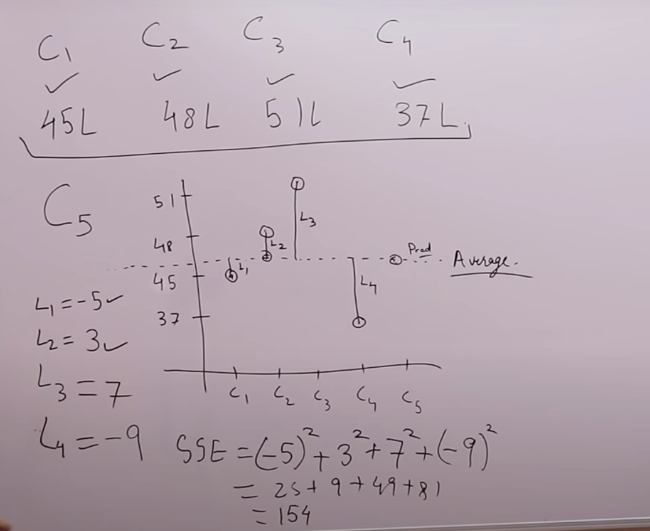 C₁ C₂ C₃ C₄
45L 48L 51L 37L
C₅
51
48
45
37
L₁
L₂
L₃
L₄
Pred
Average.
C₁ C₂ C₃ C₄ C₅
L₁ = -5 ✓
L₂ = 3 ✓
L₃ = 7
L₄ = -9
SSE = (-5)² + 3² + 7² + (-9)²
= 25 + 9 + 49 + 81
= 154